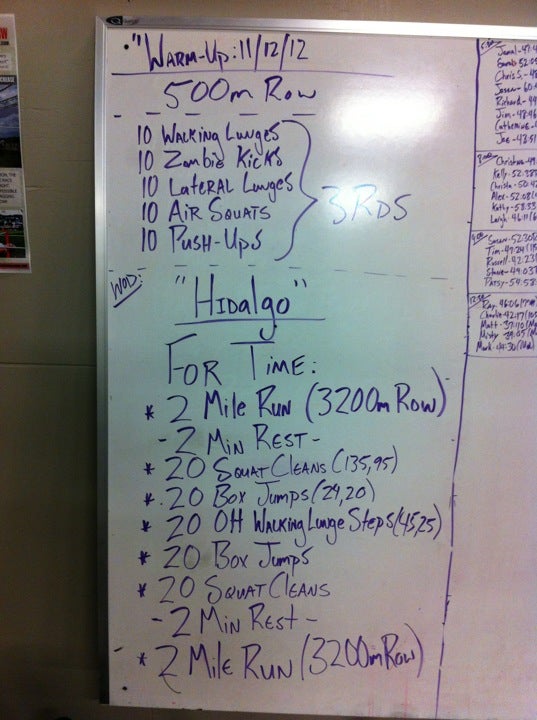 "Warm-Up: 11/12/12
500m Row
10 Walking Lunges
10 Zombie Kicks
10 Lateral Lunges
10 Air Squats
10 Push-Ups
3 RDS
WOD:
"Hidalgo"
For Time:
* 2 Mile Run (3200m Row)
- 2 Min Rest -
* 20 Squat Cleans (135,95)
* 20 Box Jumps (24,20)
* 20 OH Walking Lunge Steps (45,25)
* 20 Box Jumps
* 20 Squat Cleans
- 2 Min Rest -
* 2 Mile Run (3200m Row)
Jamal-47:4
Chris S.-48
Richard-44
Jim-48:46
Catherine-
Joe-43:51
Christina-49
Kelly-52:38
Christa-50:4
Alex-52:08
Kathy-58:33
Leigh 46:11
Susan-52:30
Tim-47:24
Russell-42:23
Stacie-49:03
Patsy-54:58
Ray-46:06
Charlie-42:17
Matt-37:10
Misty-39:05
Mark-44:30